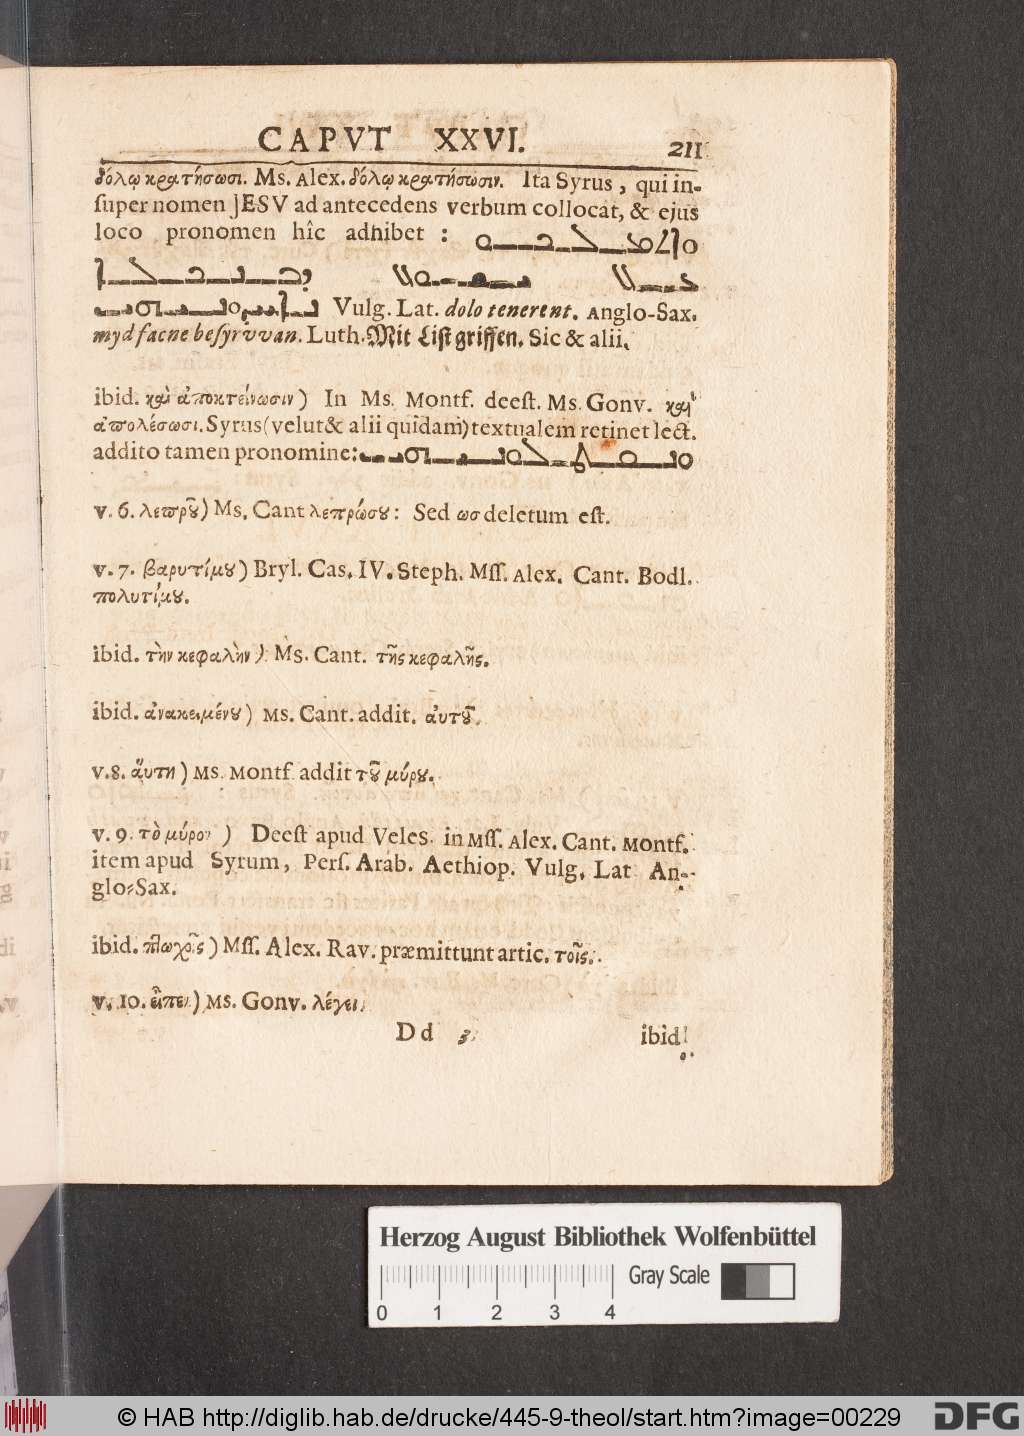 CAPVT XXVI. 211
δόλῳ κρατήσωσι. Ms. Alex. δόλῳ κρατήσωσιν. Ita Syrus, qui in-
super nomen JESV ad antecedens verbum collocat, & ejus
loco pronomen hîc adhibet :
Vulg. Lat. dolo tenerent. Anglo-Sax.
myd facne besyrvvan. Luth. Mit List griffen. Sic & alii.
ibid. καὶ ἀποκτείνωσιν) In Ms. Montf. deest. Ms. Gonv. καὶ
ἀπολέσωσι. Syrus (velut & alii quidam) textualem retinet lect.
addito tamen pronomine:
v. 6. λεπροῦ) Ms. Cant λεπρώσου: Sed ωσ deletum est.
v. 7. βαρυτίμου) Bryl. Cas. IV. Steph. Mss. Alex. Cant. Bodl.
πολυτίμου.
ibid. τὴν κεφαλὴν) Ms. Cant. τῆς κεφαλῆς.
ibid. ἀνακειμένου) Ms. Cant. addit. αὐτοῦ.
v. 8. αὕτη) Ms. Montf. addit τοῦ μύρου.
v. 9. τὸ μύρον) Deest apud Veles. in Mss. Alex. Cant. Montf.
item apud Syrum, Pers. Arab. Aethiop. Vulg. Lat An-
glo-Sax.
ibid. πτωχοῖς) Mss. Alex. Rav. præmittunt artic. τοῖς.
v. 10. εἶπεν) Ms. Gonv. λέγει.
Dd 3 ibid.
Herzog August Bibliothek Wolfenbüttel
Gray Scale
0 1 2 3 4
© HAB http://diglib.hab.de/drucke/445-9-theol/start.htm?image=00229
DFG